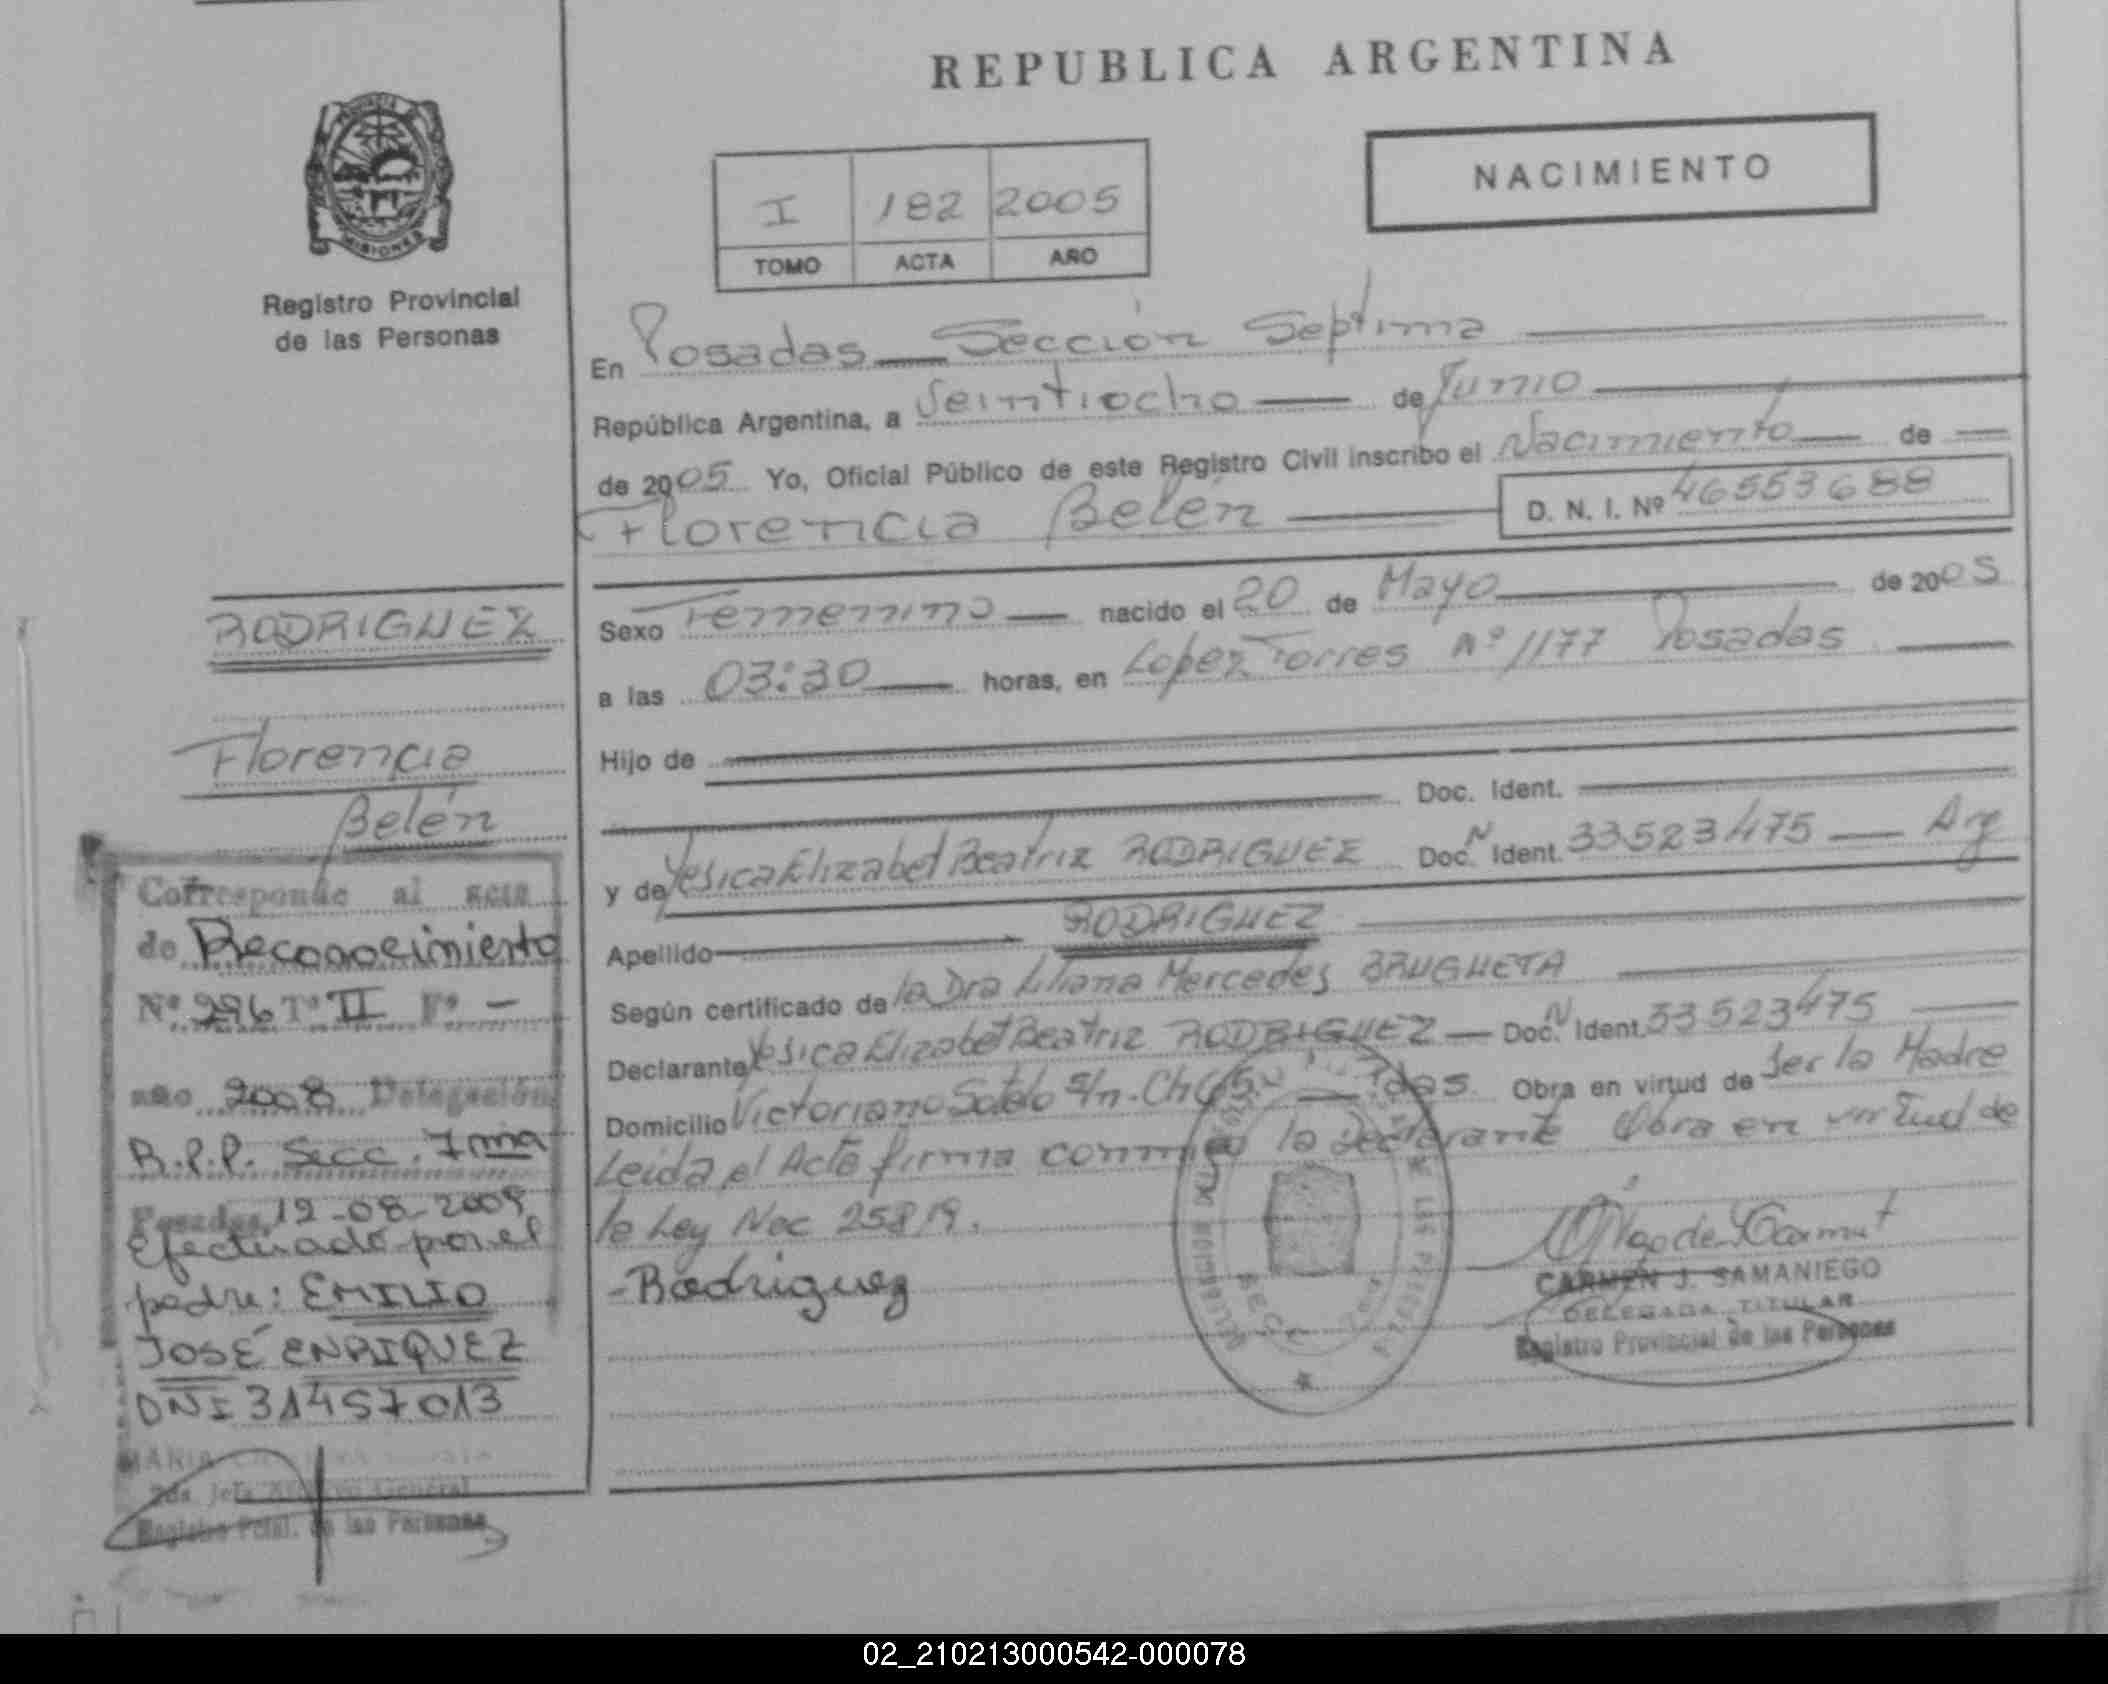 REPUBLICA ARGENTINA
NACIMIENTO
I 182 2005
TOMO ACTA AÑO
MISIONES
Registro Provincial
de las Personas
En Posadas Sección Septima
República Argentina, a Veintiocho de Junio
de 2005 Yo, Oficial Público de este Registro Civil inscribo el Nacimiento de
Florencia Belén D. N. I. Nº 46553688
Sexo Femenino nacido el 20 de Mayo de 2005
a las 03:30 horas, en Lopez Torres Nº 1177 Posadas
Hijo de
Doc. Ident.
y de Yesica Elizabet Beatriz RODRIGUEZ Doc. N Ident. 33523475 Arg
Apellido RODRIGUEZ
Según certificado de la Dra Liliana Mercedes BRUGHETA
Declarante Yesica Elizabet Beatriz RODRIGUEZ Doc. N Ident. 33523475
Domicilio Victoriano Sotelo s/n. Obra en virtud de Ser la Madre
Leida el Acta firma conmigo la Declarante Obra en virtud de
la Ley Nac 25819.
Rodriguez
CARMEN J. SAMANIEGO
DELEGADA TITULAR
Registro Provincial de las Personas
RODRIGUEZ
Florencia
Belén
Corresponde al acta
de Reconocimiento
Nº 296 Tº II Fº -
año 2008 Delegación
R.P.P. Secc. 7ma
Posadas, 12-08-2008
Efectuado por el
padre: EMILIO
JOSÉ ENRIQUEZ
DNI 31457013
MARIA
Jefa General
Registro Pcial. de las Personas
02_210213000542-000078